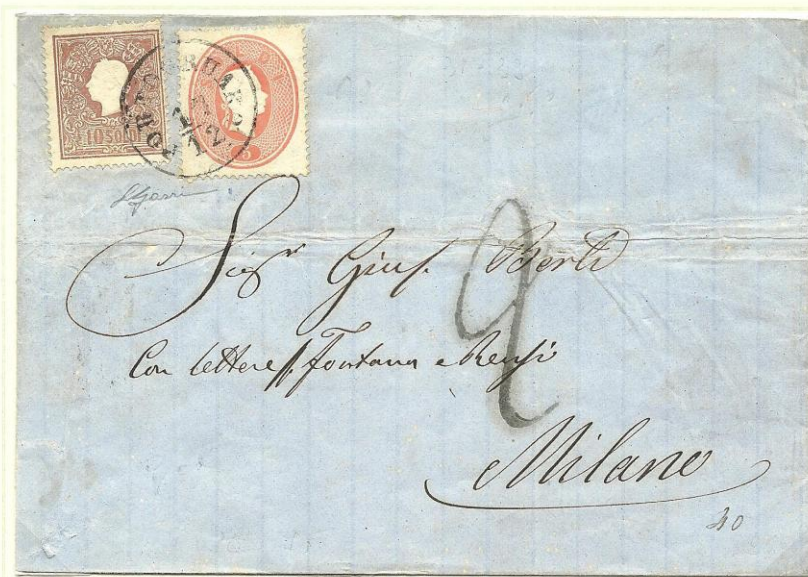 10 SOLDI
5
Sigr Gius. Berti
Con lettere p. Fontana e Rensi
2
Milano
40